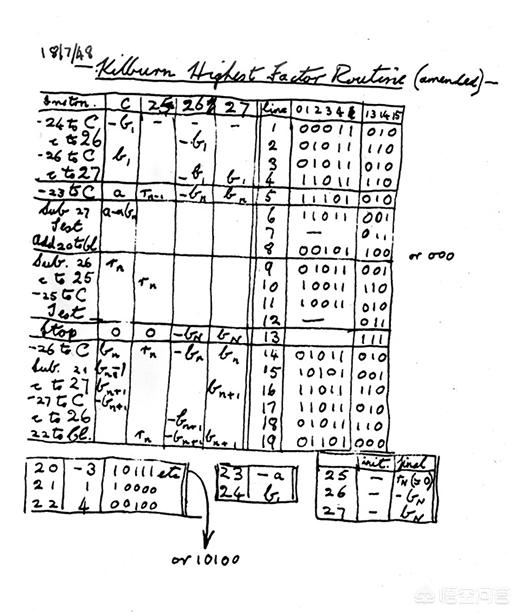 18/7/48
Kilburn Highest Factor Routine (amended)
Instrn. C 25 26 27 line 01234 131415
-24 to C -b₁ - - - 1 00011 010
c to 26 -b₁ 2 01011 110
-26 to C b₁ 3 01011 010
c to 27 -b₁ b₁ 4 11011 110
-23 to C a rₙ₋₁ -bₙ bₙ 5 11101 010
Sub 27 a-nbₙ 6 11011 001
Test 7 - 011
Add 20 to bl. 8 00101 100 or 000
Sub. 26 rₙ 9 01011 001
c to 25 rₙ 10 10011 110
-25 to C 11 10011 010
Test 12 - 011
Stop 0 0 -b_N b_N 13 111
-26 to C bₙ rₙ -bₙ bₙ 14 01011 010
Sub. 21 bₙ₊₁ 15 10101 001
c to 27 bₙ₊₁ bₙ₊₁ 16 11011 110
-27 to C -bₙ₊₁ 17 11011 010
c to 26 -bₙ₊₁ 18 01011 110
22 to bl. rₙ -bₙ₊₁ bₙ₊₁ 19 01101 000
20 -3 10111 etc
21 1 10000
22 4 00100
or 10100
23 -a
24 b₁
init. final
25 - r_N (=0)
26 - -b_N
27 - b_N
悟空问答